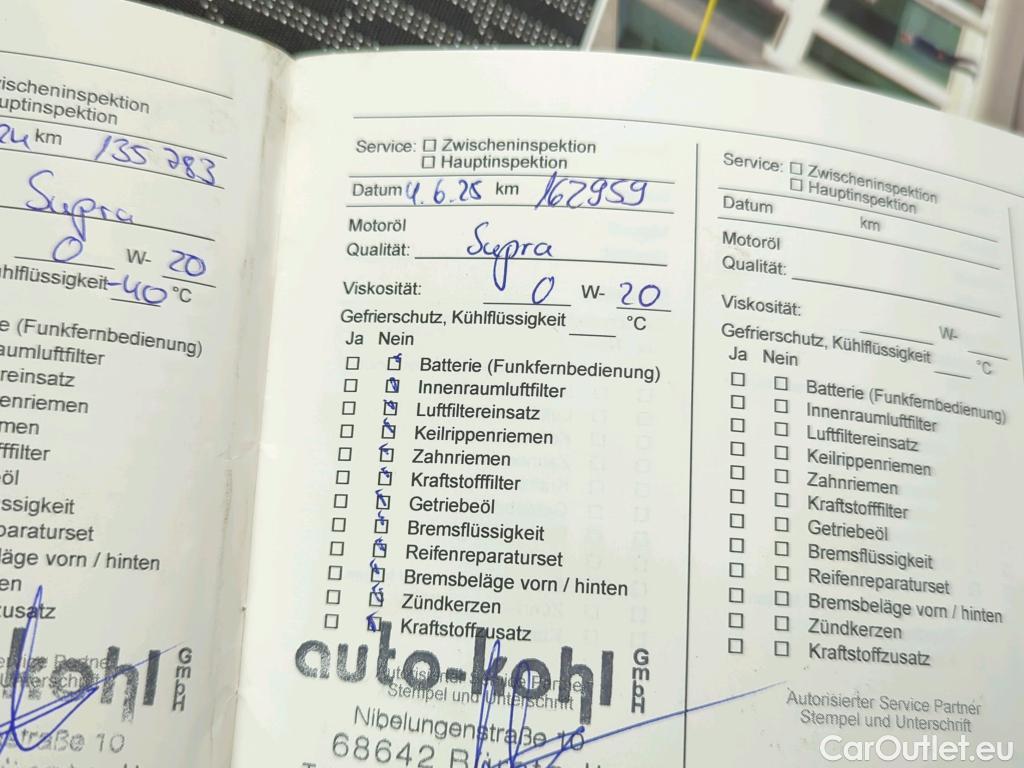 ischeninspektion
uptinspektion
24 km 135 783
Supra
0 W- 20
ühlflüssigkeit -40 °C
e (Funkfernbedienung)
aumluftfilter
reinsatz
enriemen
men
fffilter
öl
ssigkeit
paraturset
läge vorn / hinten
en
zusatz
kohl GmbH
ervice Partner
Unterschrift
straße 10
Service: ☐ Zwischeninspektion
☐ Hauptinspektion
Datum 4.6.25 km 162959
Motoröl
Qualität: Supra
Viskosität: 0 W- 20
Gefrierschutz, Kühlflüssigkeit °C
Ja Nein
Batterie (Funkfernbedienung)
Innenraumluftfilter
Luftfiltereinsatz
Keilrippenriemen
Zahnriemen
Kraftstofffilter
Getriebeöl
Bremsflüssigkeit
Reifenreparaturset
Bremsbeläge vorn / hinten
Zündkerzen
Kraftstoffzusatz
auto-kohl GmbH
Autorisierter Service Partner
Stempel und Unterschrift
Nibelungenstraße 10
68642 B
Service: ☐ Zwischeninspektion
☐ Hauptinspektion
Datum km
Motoröl
Qualität:
Viskosität: W-
Gefrierschutz, Kühlflüssigkeit °C
Ja Nein
Batterie (Funkfernbedienung)
Innenraumluftfilter
Luftfiltereinsatz
Keilrippenriemen
Zahnriemen
Kraftstofffilter
Getriebeöl
Bremsflüssigkeit
Reifenreparaturset
Bremsbeläge vorn / hinten
Zündkerzen
Kraftstoffzusatz
Autorisierter Service Partner
Stempel und Unterschrift
CarOutlet.eu